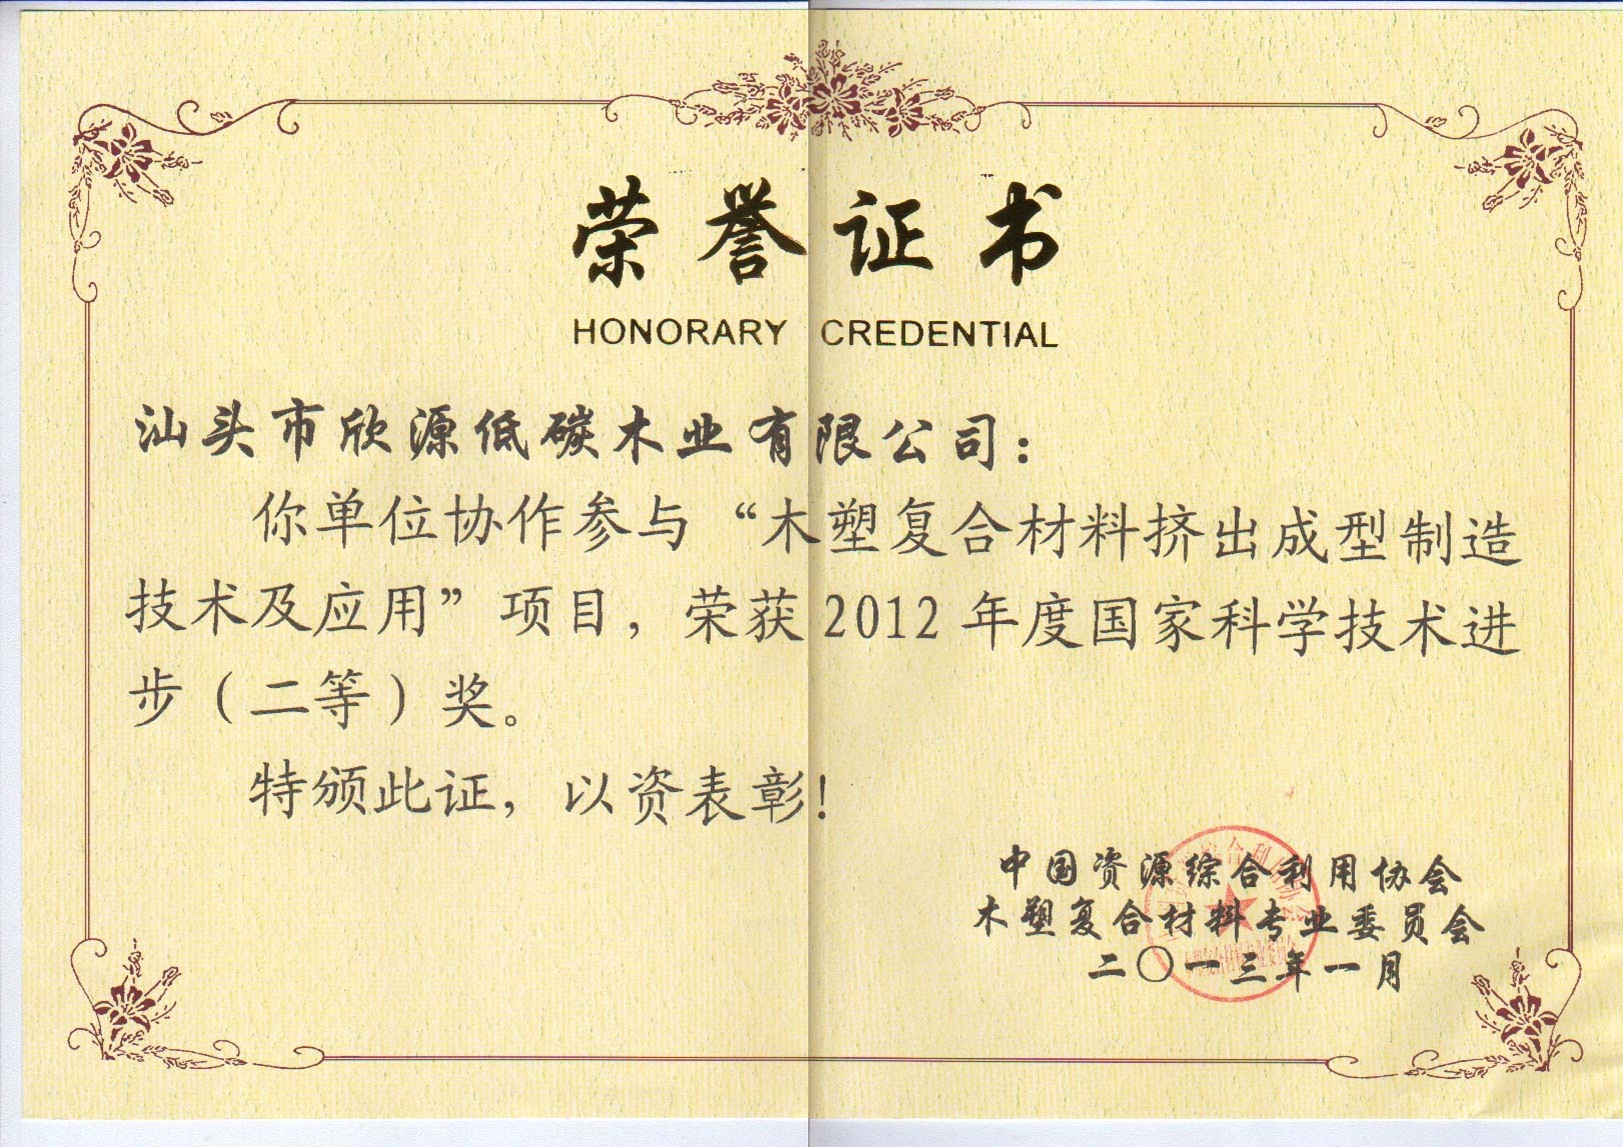 荣誉证书
HONORARY CREDENTIAL
汕头市欣源低碳木业有限公司：
你单位协作参与“木塑复合材料挤出成型制造
技术及应用”项目，荣获2012年度国家科学技术进
步（二等）奖。
特颁此证，以资表彰！
中国资源综合利用协会
木塑复合材料专业委员会
二〇一三年一月